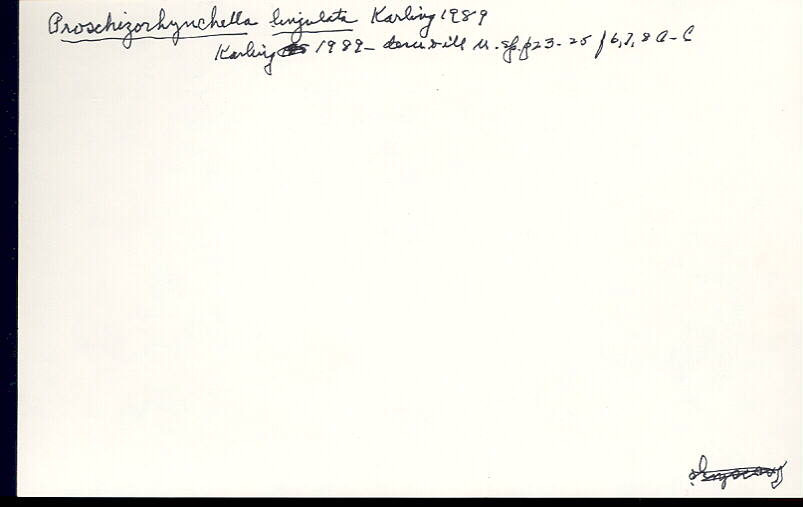 Proschizorhynchella lingulata Karling 1989
Karling 1989 - desc & ill n. sp. p23-25 f 6, 7, 8 A-C